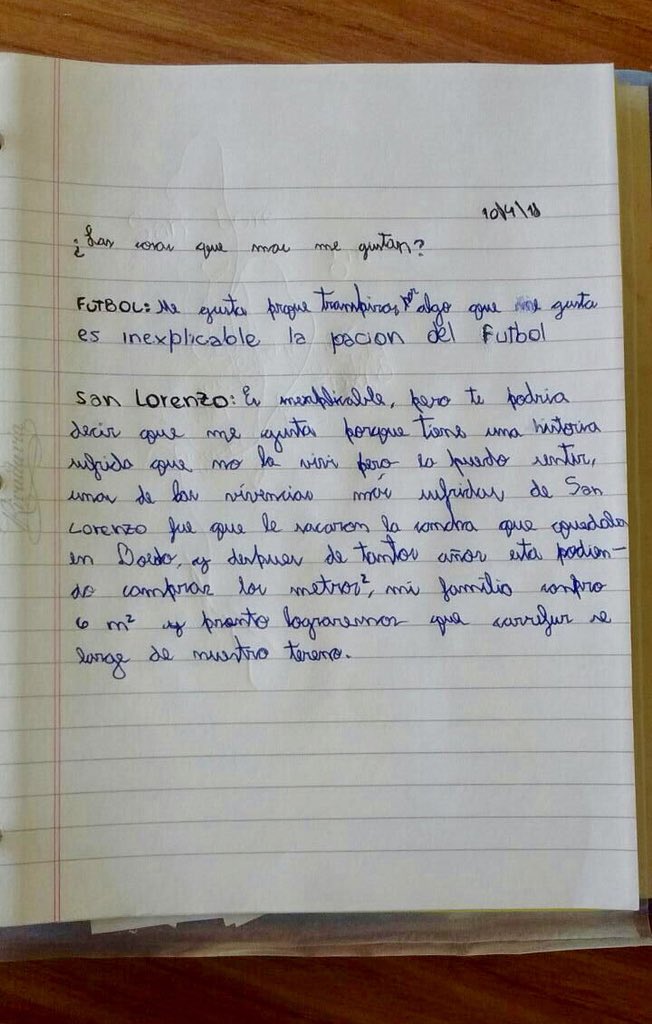 10/4/18
¿Las cosas que mas me gustan?
FUTBOL: Me gusta porque transpiras por algo que me gusta
es inexplicable la pacion del Futbol
San Lorenzo: Es inexplicable, pero te podria
decir que me gusta porque tiene una historia
sufrida que no la vivi pero la puedo sentir,
unas de las vivencias más sufridas de San
Lorenzo fue que le sacaron la cancha que quedaba
en Boedo, y despues de tantos años esta podien-
do comprar los metros², mi familia conpro
6 m² y pronto lograremos que carrefur se
large de nuestro tereno.